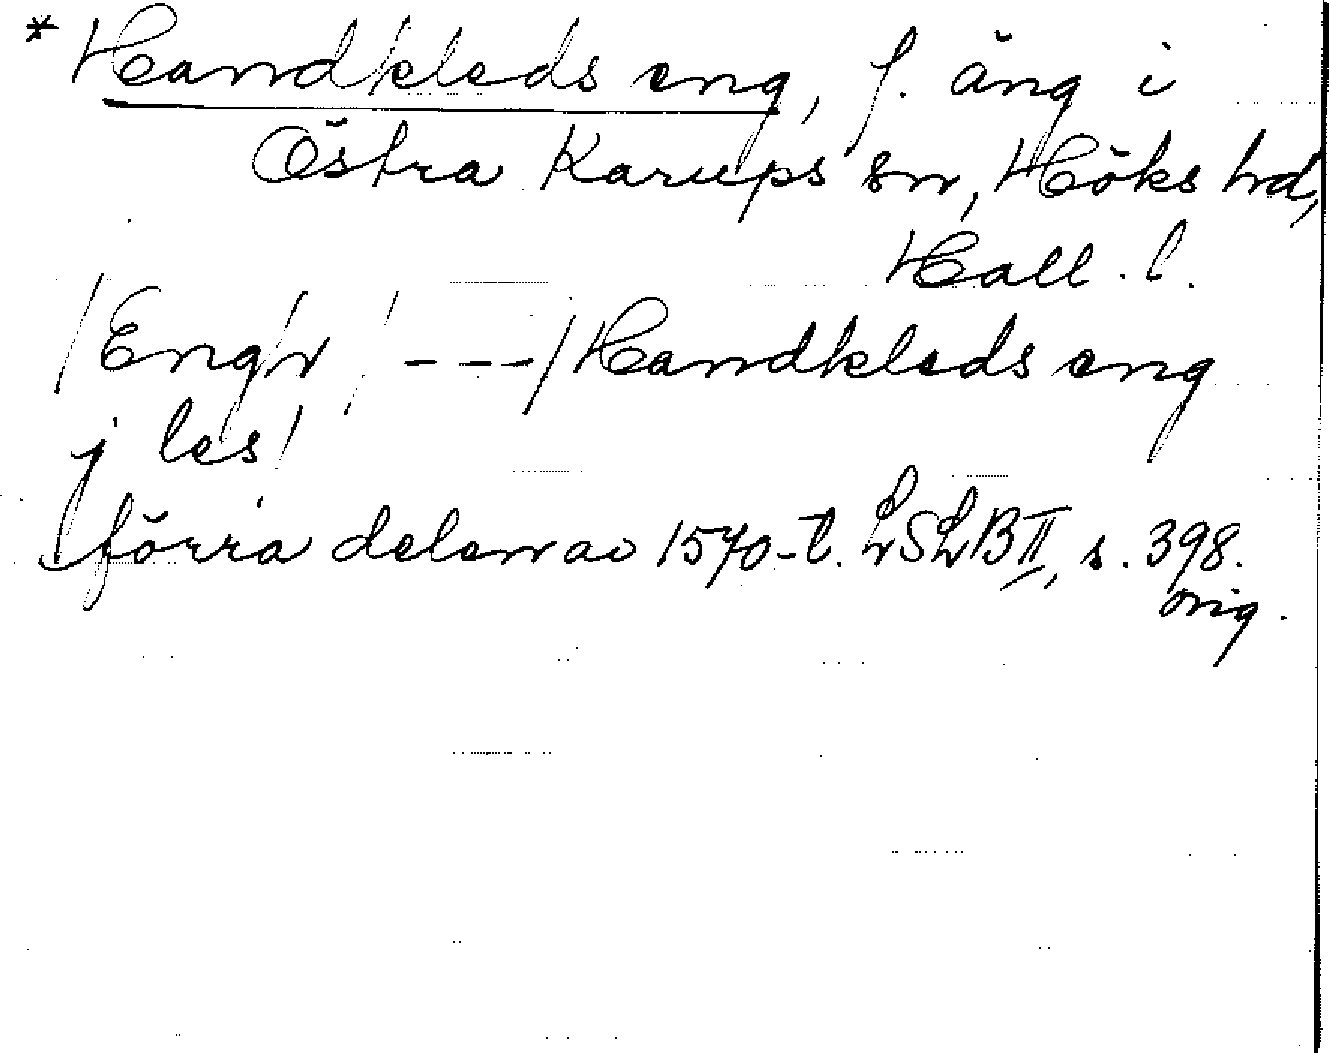 * Handkleds eng, f. äng i
Östra Karups sn, Höks hd,
Hall. l.
/Eng/r/ ---/Handkleds eng
j les/
förra delen av 1570-t. LSLB II, s. 398.
orig.